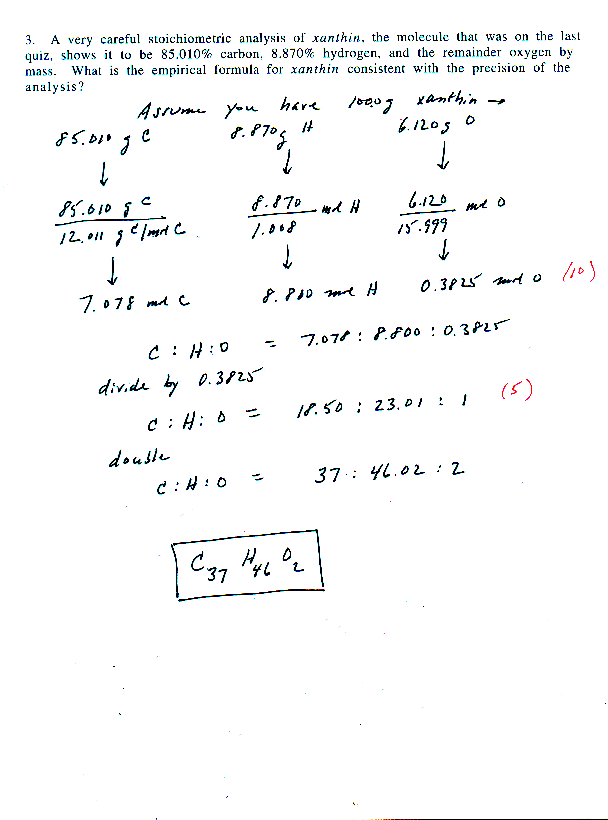 3. A very careful stoichiometric analysis of xanthin, the molecule that was on the last
quiz, shows it to be 85.010% carbon, 8.870% hydrogen, and the remainder oxygen by
mass. What is the empirical formula for xanthin consistent with the precision of the
analysis?
Assume you have 100.0 g xanthin →
85.010 g C 8.870g H 6.120g O
↓ ↓ ↓
85.010 g C / 12.011 g C/mol C 8.870 / 1.008 mol H 6.120 / 15.999 mol O
↓ ↓ ↓
7.078 mol C 8.800 mol H 0.3825 mol O (10)
C : H : O = 7.078 : 8.800 : 0.3825
divide by 0.3825
C : H : O = 18.50 : 23.01 : 1 (5)
double
C : H : O = 37 : 46.02 : 2
C37 H46 O2